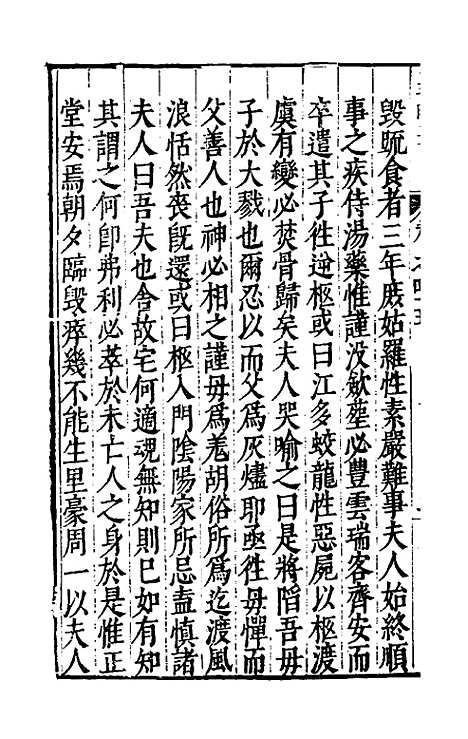 毀觗食者三年庶姑羅性素嚴難事夫人始終順
事之疾侍湯藥惟謹没歛塟必豐雲瑞客齊安而
卒遣其子徃逆柩或曰江多蛟龍性惡屍以柩渡
虞有變必焚骨歸矣夫人哭喻之曰是將陷吾毋
子於大戮也爾忍以而父爲灰燼耶亟徃毋憚而
父善人也神必相之謹毋爲羗胡俗所爲迄渡風
浪恬然喪旣還或曰柩入門陰陽家所忌盍慎諸
夫人曰吾夫也舍故宅何適魂無知則已如有知
其謂之何卽弗利必萃於未亡人之身於是惟正
堂安焉朝夕臨毀瘠幾不能生里豪周一以夫人